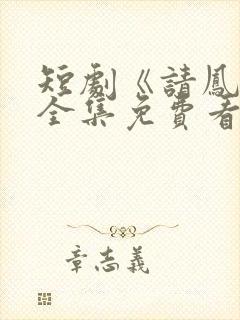 短劇《請鳳
全集免費看
章志義